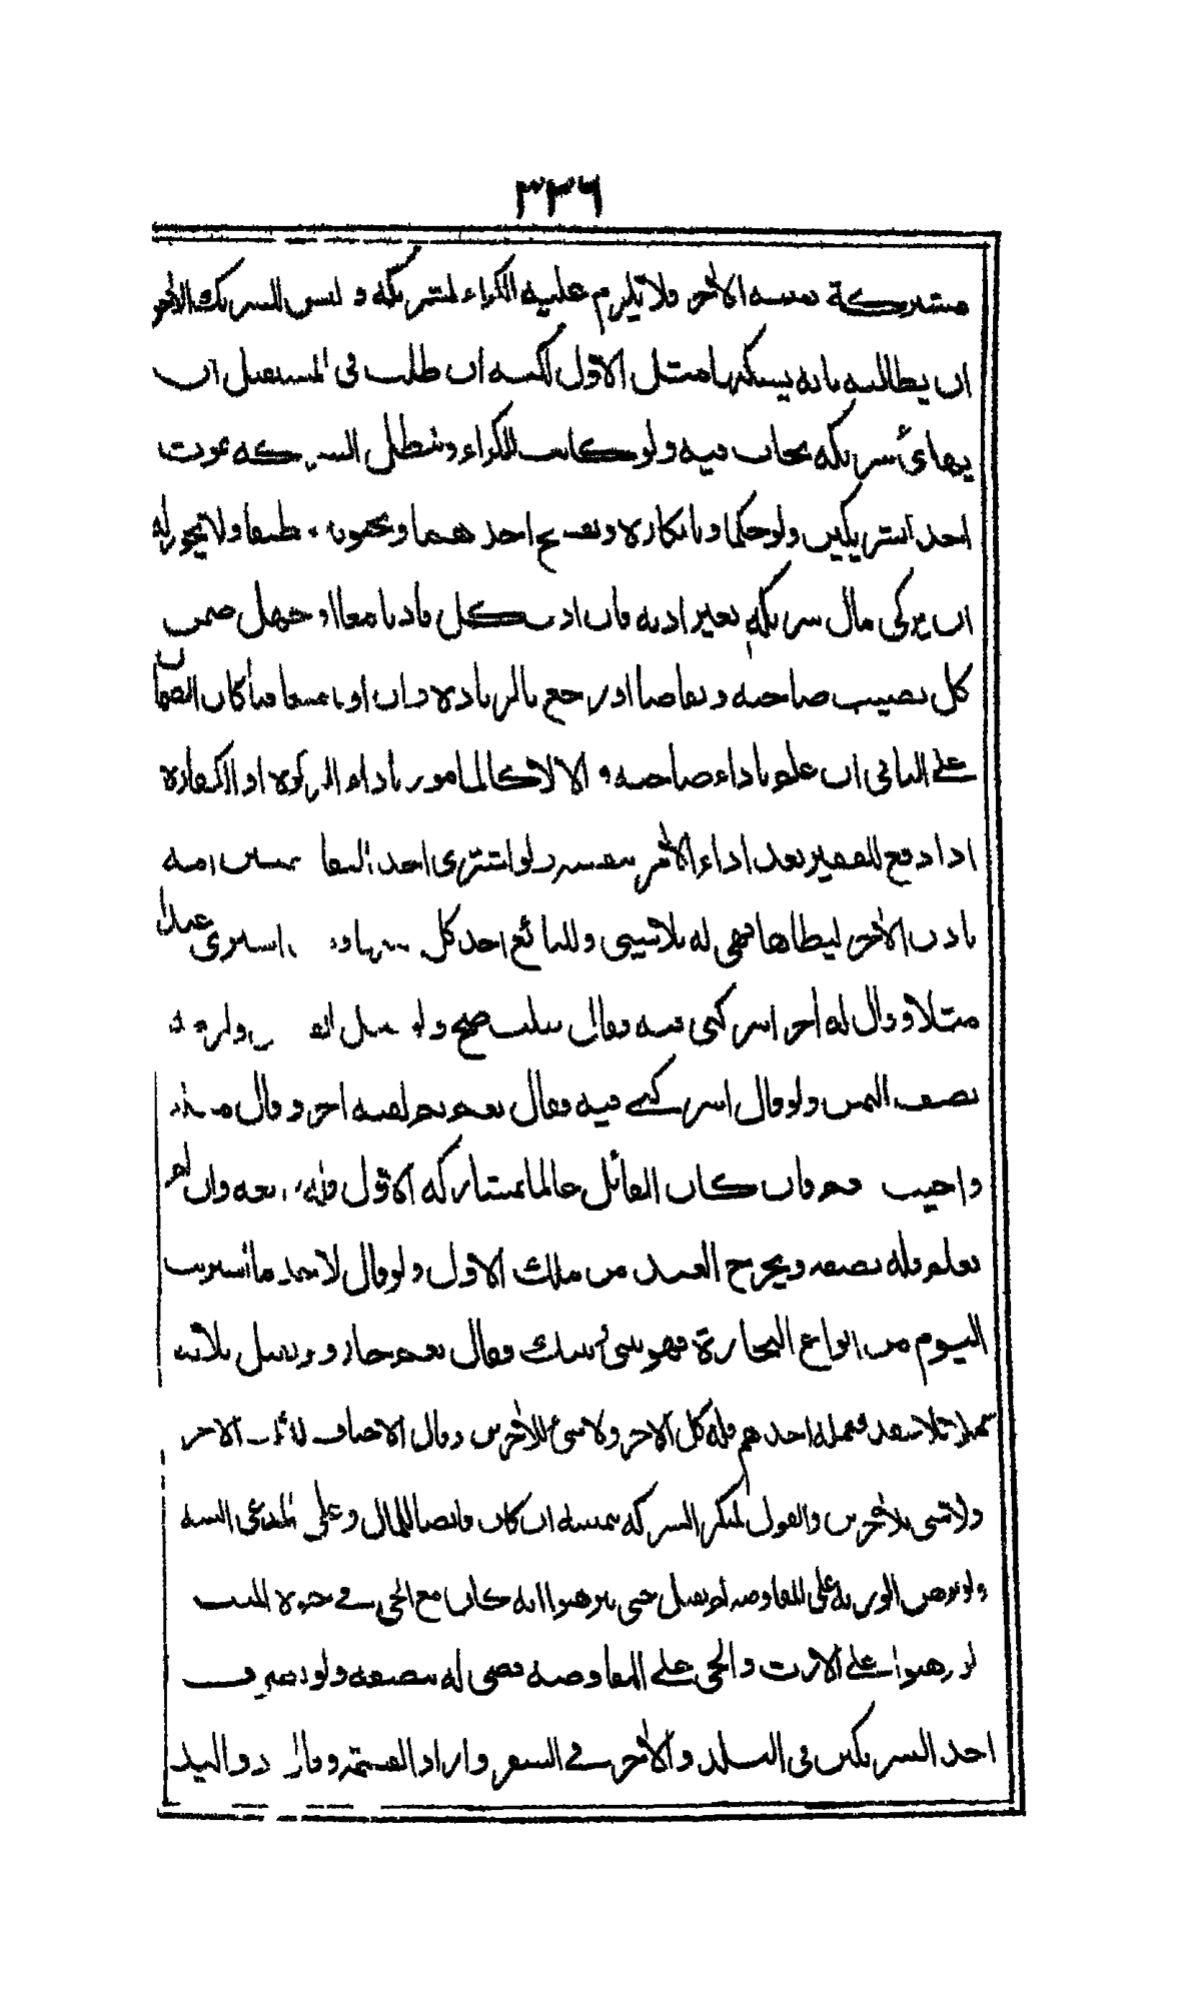 ٣٣٦
مشتركة بينه الآخر ولا يلزم عليه الكراء لشريكه وليس للشريك الآخر
ان يطالبه بانه يسكنها مثل الاول لكنه ان طلب في المستقبل ان
يهائ شريكه يجاب فيه ولو كانت للكراء وتبطل الشركة بموت
احد الشريكين ولو حكما وبانكاره وبفسخ احدهما وبجنونه مطبقا ولا يجوز له
ان يزكي مال شريكه بغير اذنه فان اذن كل فاديا معا او جهل ضمن
كل نصيب صاحبه وتقاصا او رجع بالزيادة وان اديا متعاقبا كان الضمان
على الثاني ان علم باداء صاحبه و الا لا كالمامور باداء الزكوة او الكفارة
اذا دفع للفقير بعد اداء الآخر بنفسه ولو اشترى احد امة
باذن الآخر ليطأها فهي له بلا شيء وللبائع اخذ كل اشترى عبدا
مثلا وقال له آخر اشركني فيه فقال فعلت صح ولو
نصف الثمن ولو قال اشركني فيه فقال نعم ثم لقيه آخر وقال مثله
واجيب نعم فان كان القائل عالما بمشاركة الاول فله ربعه وان لم
يعلم فله نصفه ويخرج العبد من ملك الاول ولو قال لاحد ما اشتريت
اليوم من انواع التجارة فهو بيني وبينك فقال نعم جاز وتقبل ثلاثة
عملا بلا عقد فعمله احدهم فله كل الاجر ولا شيء للآخرين وقال الاجر
ولا شيء للآخرين والقول لمنكر الشركة بيمينه ان كان قابضا للمال وعلى المدعي البينة
ولو برهن الورثة على المفاوضة لم يقبل حتى يبرهنوا انه كان مع الحي في حيوة الميت
لو برهنوا على الارث والحي على المفاوضة قضى له بنصفه ولو تصرف
احد الشريكين في البلد والآخر في السفر واراد القسمة وقال ذو اليد